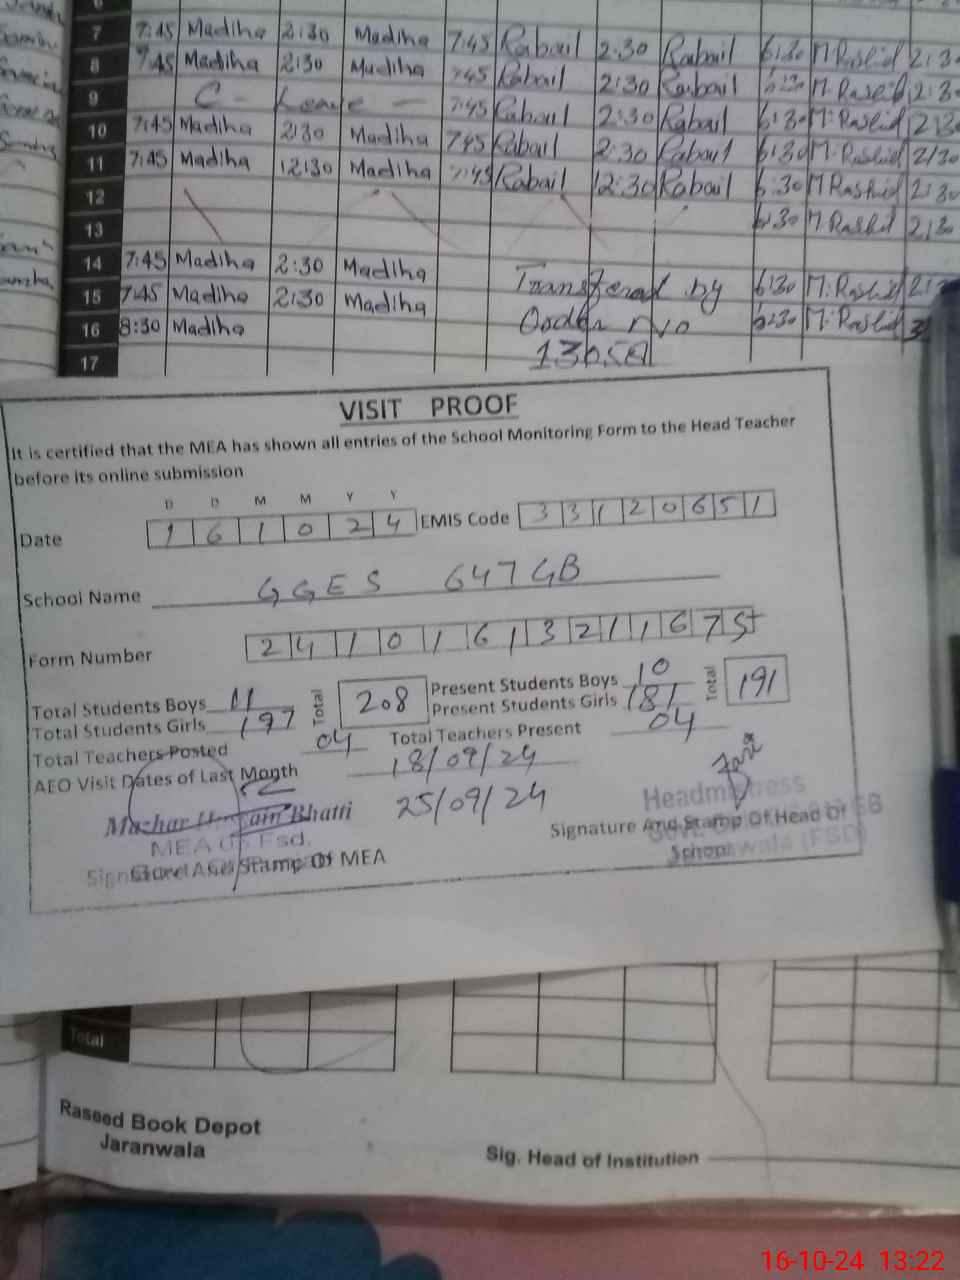 7 7:45 Madiha 2:30 Madiha 7:45 Rabail 2:30 Rabail 6:30 M.Rashid 2:3
8 7:45 Madiha 2:30 Madiha 7:45 Rabail 2:30 Rabail 6:30 M.Rashid 2:3
9 C - Leave - 7:45 Rabail 2:30 Rabail 6:30 M.Rashid 2:30
10 7:45 Madiha 2:30 Madiha 7:45 Rabail 2:30 Rabail 6:30 M.Rashid 2:30
11 7:45 Madiha 12:30 Madiha 7:45 Rabail 12:30 Rabail 6:30 M Rashid 2:30
12 6:30 M.Rashid 2:30
13
14 7:45 Madiha 2:30 Madiha 6:30 M.Rashid 2:
15 7:45 Madiha 2:30 Madiha 6:30 M.Rashid
16 8:30 Madiha
17
Transfered by
Order No
VISIT PROOF
It is certified that the MEA has shown all entries of the School Monitoring Form to the Head Teacher
before its online submission
D D M M Y Y
Date 1 6 1 0 2 4 EMIS Code 3 3 1 2 0 6 5 1
School Name GGES 647 GB
Form Number 2 4 1 0 1 6 1 3 2 1 1 6 7 5
Total Students Boys 11 Total 208 Present Students Boys 10 Total 191
Total Students Girls 197 Present Students Girls 181
Total Teachers Posted 04 Total Teachers Present 04
AEO Visit Dates of Last Month 18/09/24
25/09/24
Mazhar Hussain Bhatti
MEA Fsd.
Signature And Stamp Of MEA
Headmistress
Signature And Stamp Of Head Of
School
Total
Raseed Book Depot
Jaranwala
Sig. Head of Institution
16-10-24 13:22